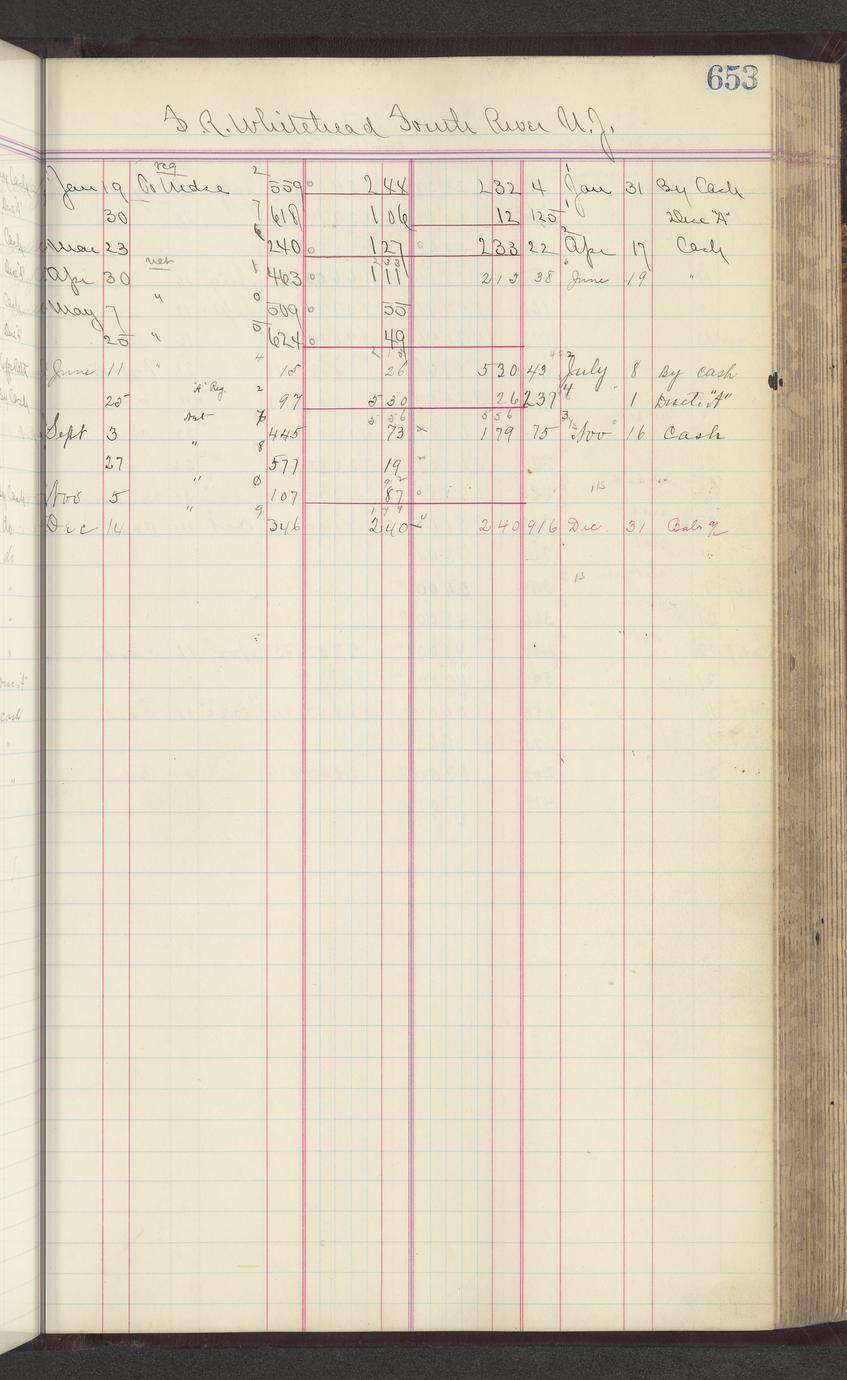 653
S. R. Whitehead South River N.J.
reg
Jan 19 To Mdse 2 559 2 44 2 32 4 1 Jan 31 By Cash
30 7 618 1 06 12 125 1 Disc "A"
Mar 23 6 240 1 27 2 33 22 2 Apr 17 Cash
net 2 33
Apr 30 1 463 1 11 2 15 38 June 19 "
May 7 " 0 509 55
25 " 5 624 49
2 15
June 11 " 4 15 26 5 30 43 2 July 8 By Cash
25 "A" Reg. 2 97 5 30 26 237 4 " 1 Disct. "A"
5 56 5 56
Sept 3 Net 7 445 73 1 79 75 3 Nov 16 Cash
27 " 8 577 19
92
Nov 5 " 0 107 87
1 79
Dec 14 " 9 346 2 40 2 40 916 Dec 31 Bal